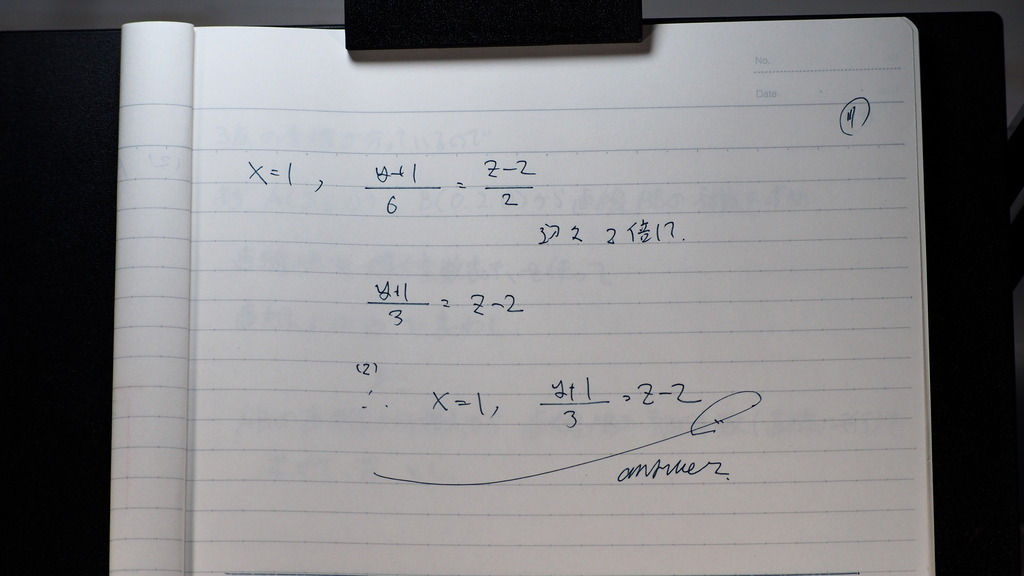 No.
Date
x=1, (y+1)/6 = (z-2)/2
2倍して.
(y+1)/3 = z-2
(2)
∴ x=1, (y+1)/3 = z-2
answer.